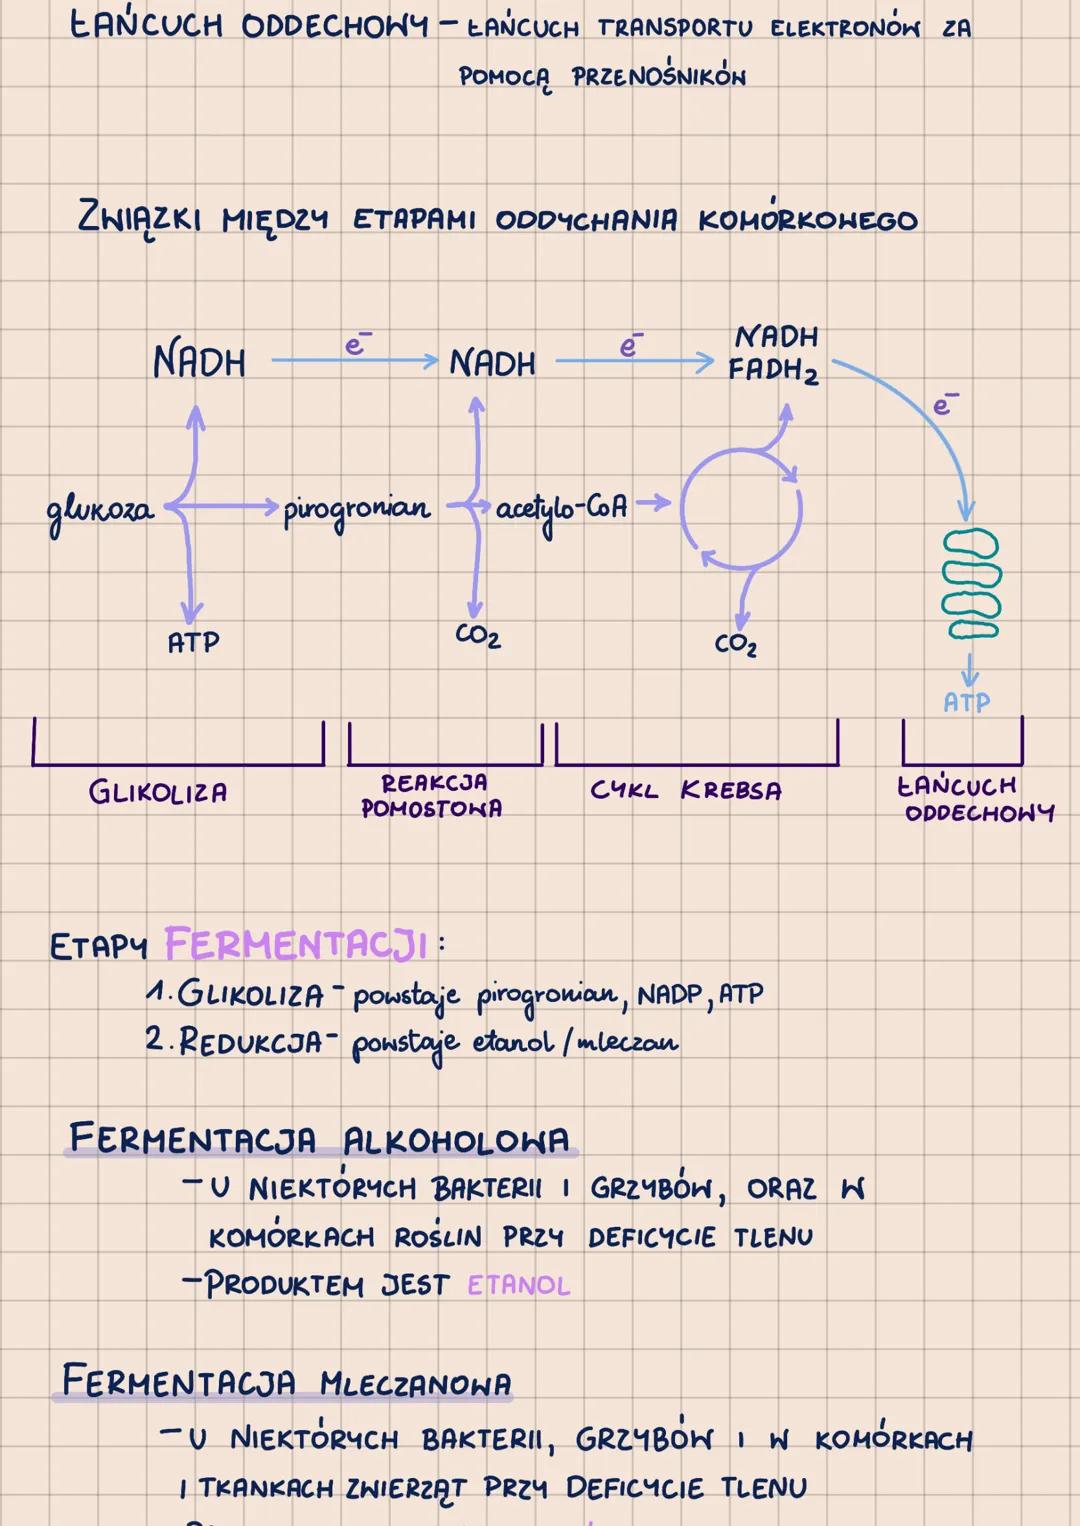 ŁAŃCUCH ODDECHOWY – ŁAŃCUCH TRANSPORTU ELEKTRONÓW ZA
POMOCĄ PRZENOŚNIKÓW
ZWIĄZKI MIĘDZY ETAPAMI ODDYCHANIA KOMÓRKOWEGO
NADH e⁻ NADH e⁻ NADH
FADH₂
e⁻
glukoza pirogronian acetylo-CoA
ATP CO₂ CO₂
ATP
GLIKOLIZA REAKCJA POMOSTOWA CYKL KREBSA ŁAŃCUCH ODDECHOWY
ETAPY FERMENTACJI:
1. GLIKOLIZA - powstaje pirogronian, NADP, ATP
2. REDUKCJA - powstaje etanol / mleczan
FERMENTACJA ALKOHOLOWA
- U NIEKTÓRYCH BAKTERII I GRZYBÓW, ORAZ W
KOMÓRKACH ROŚLIN PRZY DEFICYCIE TLENU
- PRODUKTEM JEST ETANOL
FERMENTACJA MLECZANOWA
- U NIEKTÓRYCH BAKTERII, GRZYBÓW I W KOMÓRKACH
I TKANKACH ZWIERZĄT PRZY DEFICYCIE TLENU